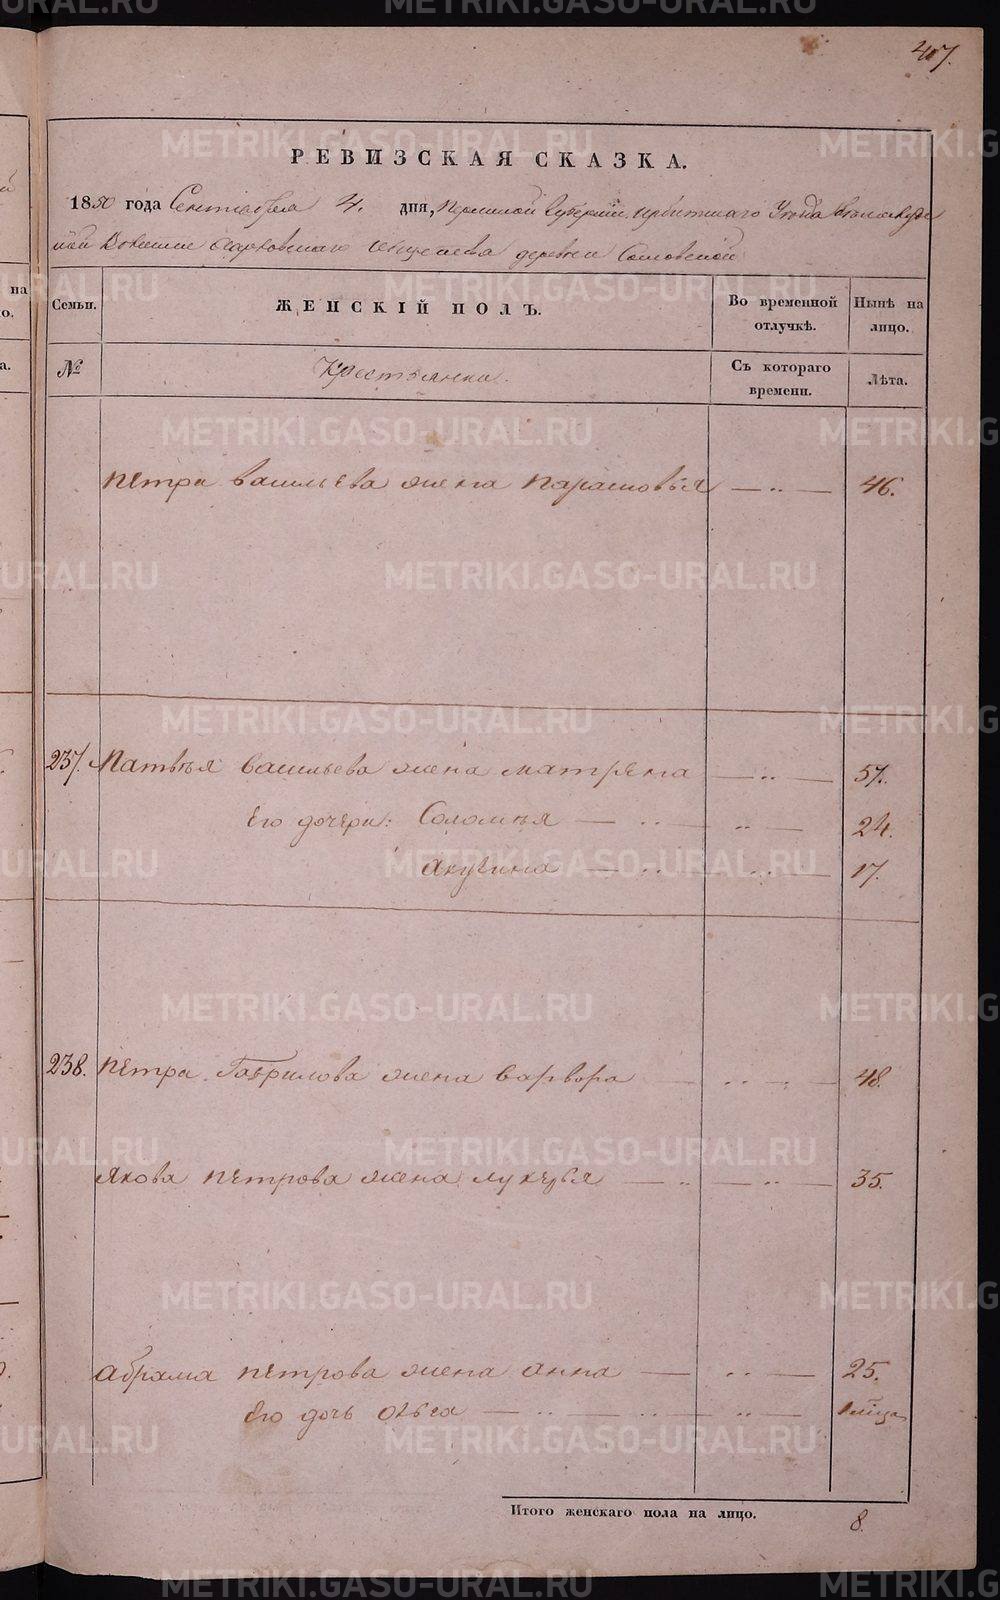 407.
РЕВИЗСКАЯ СКАЗКА.
1850 года Сентября 4. дня, Пермской Губернии, Ирбитскаго Уезда
деревни
Семьи. ЖЕНСКІЙ ПОЛЪ. Во временной отлучкѣ. Нынѣ на лицо.
№ Крестьянки. Съ котораго времени. Лѣта.
Петра Васильева жена Парасковья — „ — 46.
237. Матвея Васильева жена Матрена — „ — 57.
Его дочери: Соломея — „ — „ — 24.
Акулина — „ — „ — 17.
238. Петра Гаврилова жена Варвора — „ — 48.
Якова Петрова жена Лукерья — „ — „ — 35.
Абрама Петрова жена Анна — „ — 25.
Его дочь Ольга — „ — „ —
Итого женскаго пола на лицо. 8.
METRIKI.GASO-URAL.RU